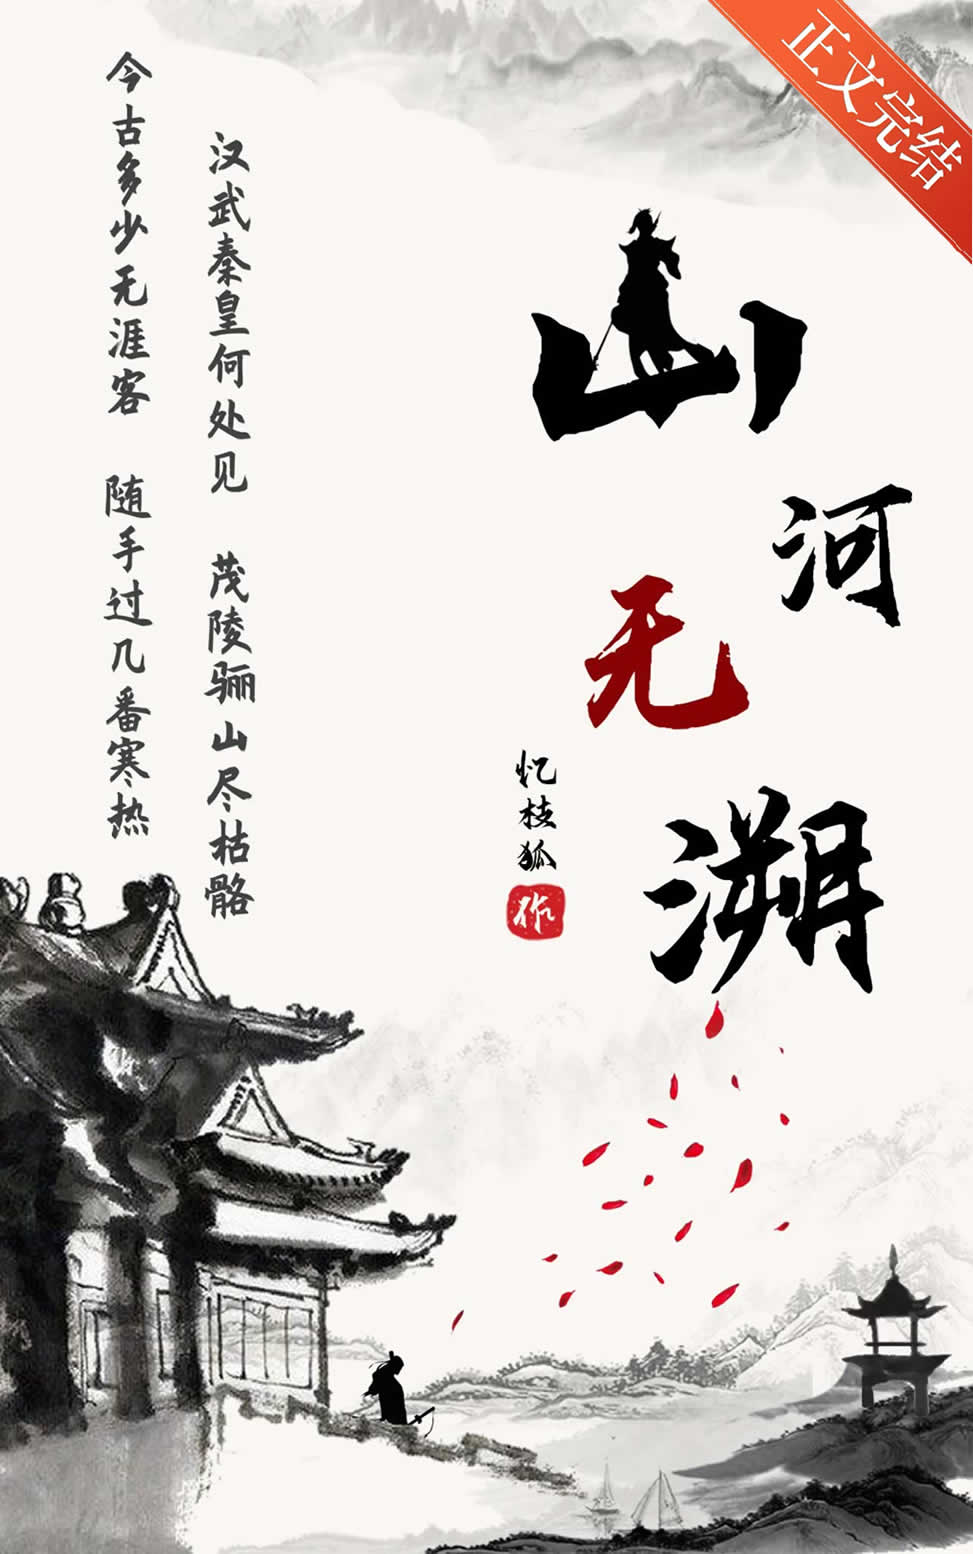 正文完结
山河无溯
忆枝狐
作
今古多少无涯客 随手过几番寒热
汉武秦皇何处见 茂陵骊山尽枯骼